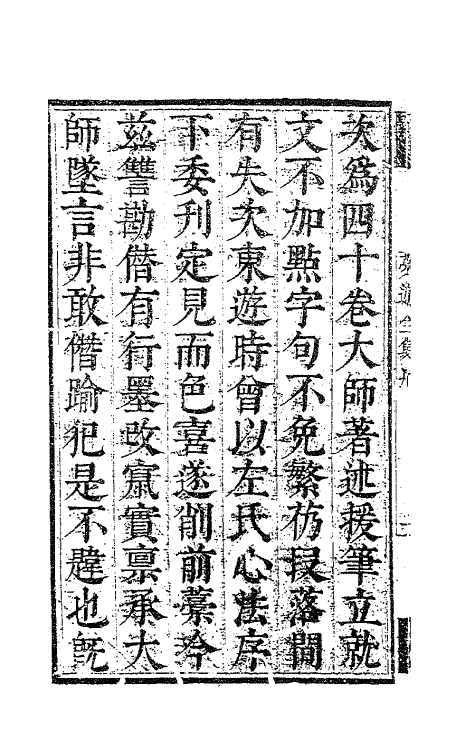 次爲四十卷大師著述援筆立就
文不加點字句不免繁仍段落間
有失次東遊時曾以左氏心法序
下委刊定見而色喜遂削前藁今
茲讐勘僭有行墨改竄實禀承大
師墜言非敢僭踰犯是不韙也旣
夢遊全集